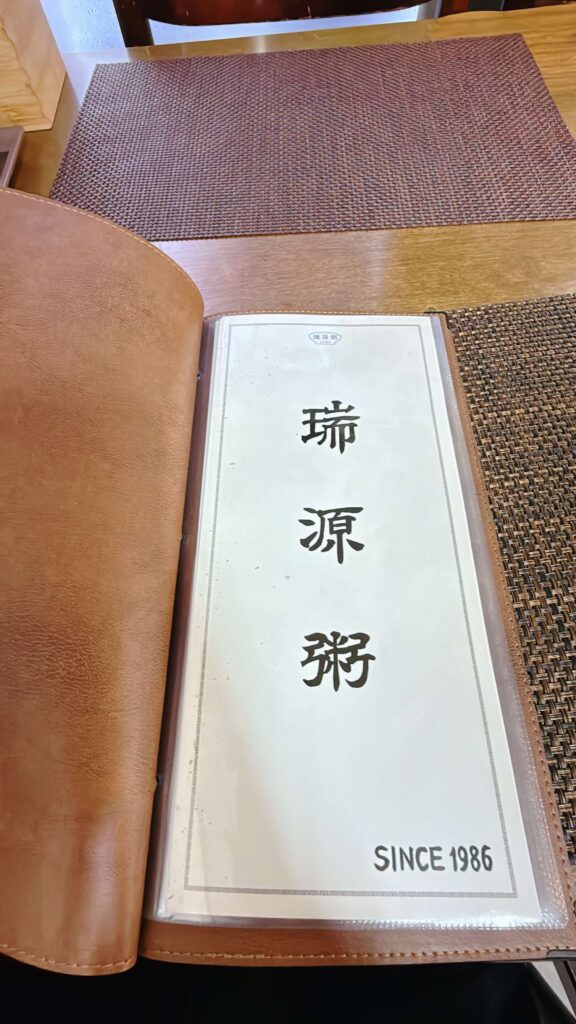 瑞源粥
SINCE 1986